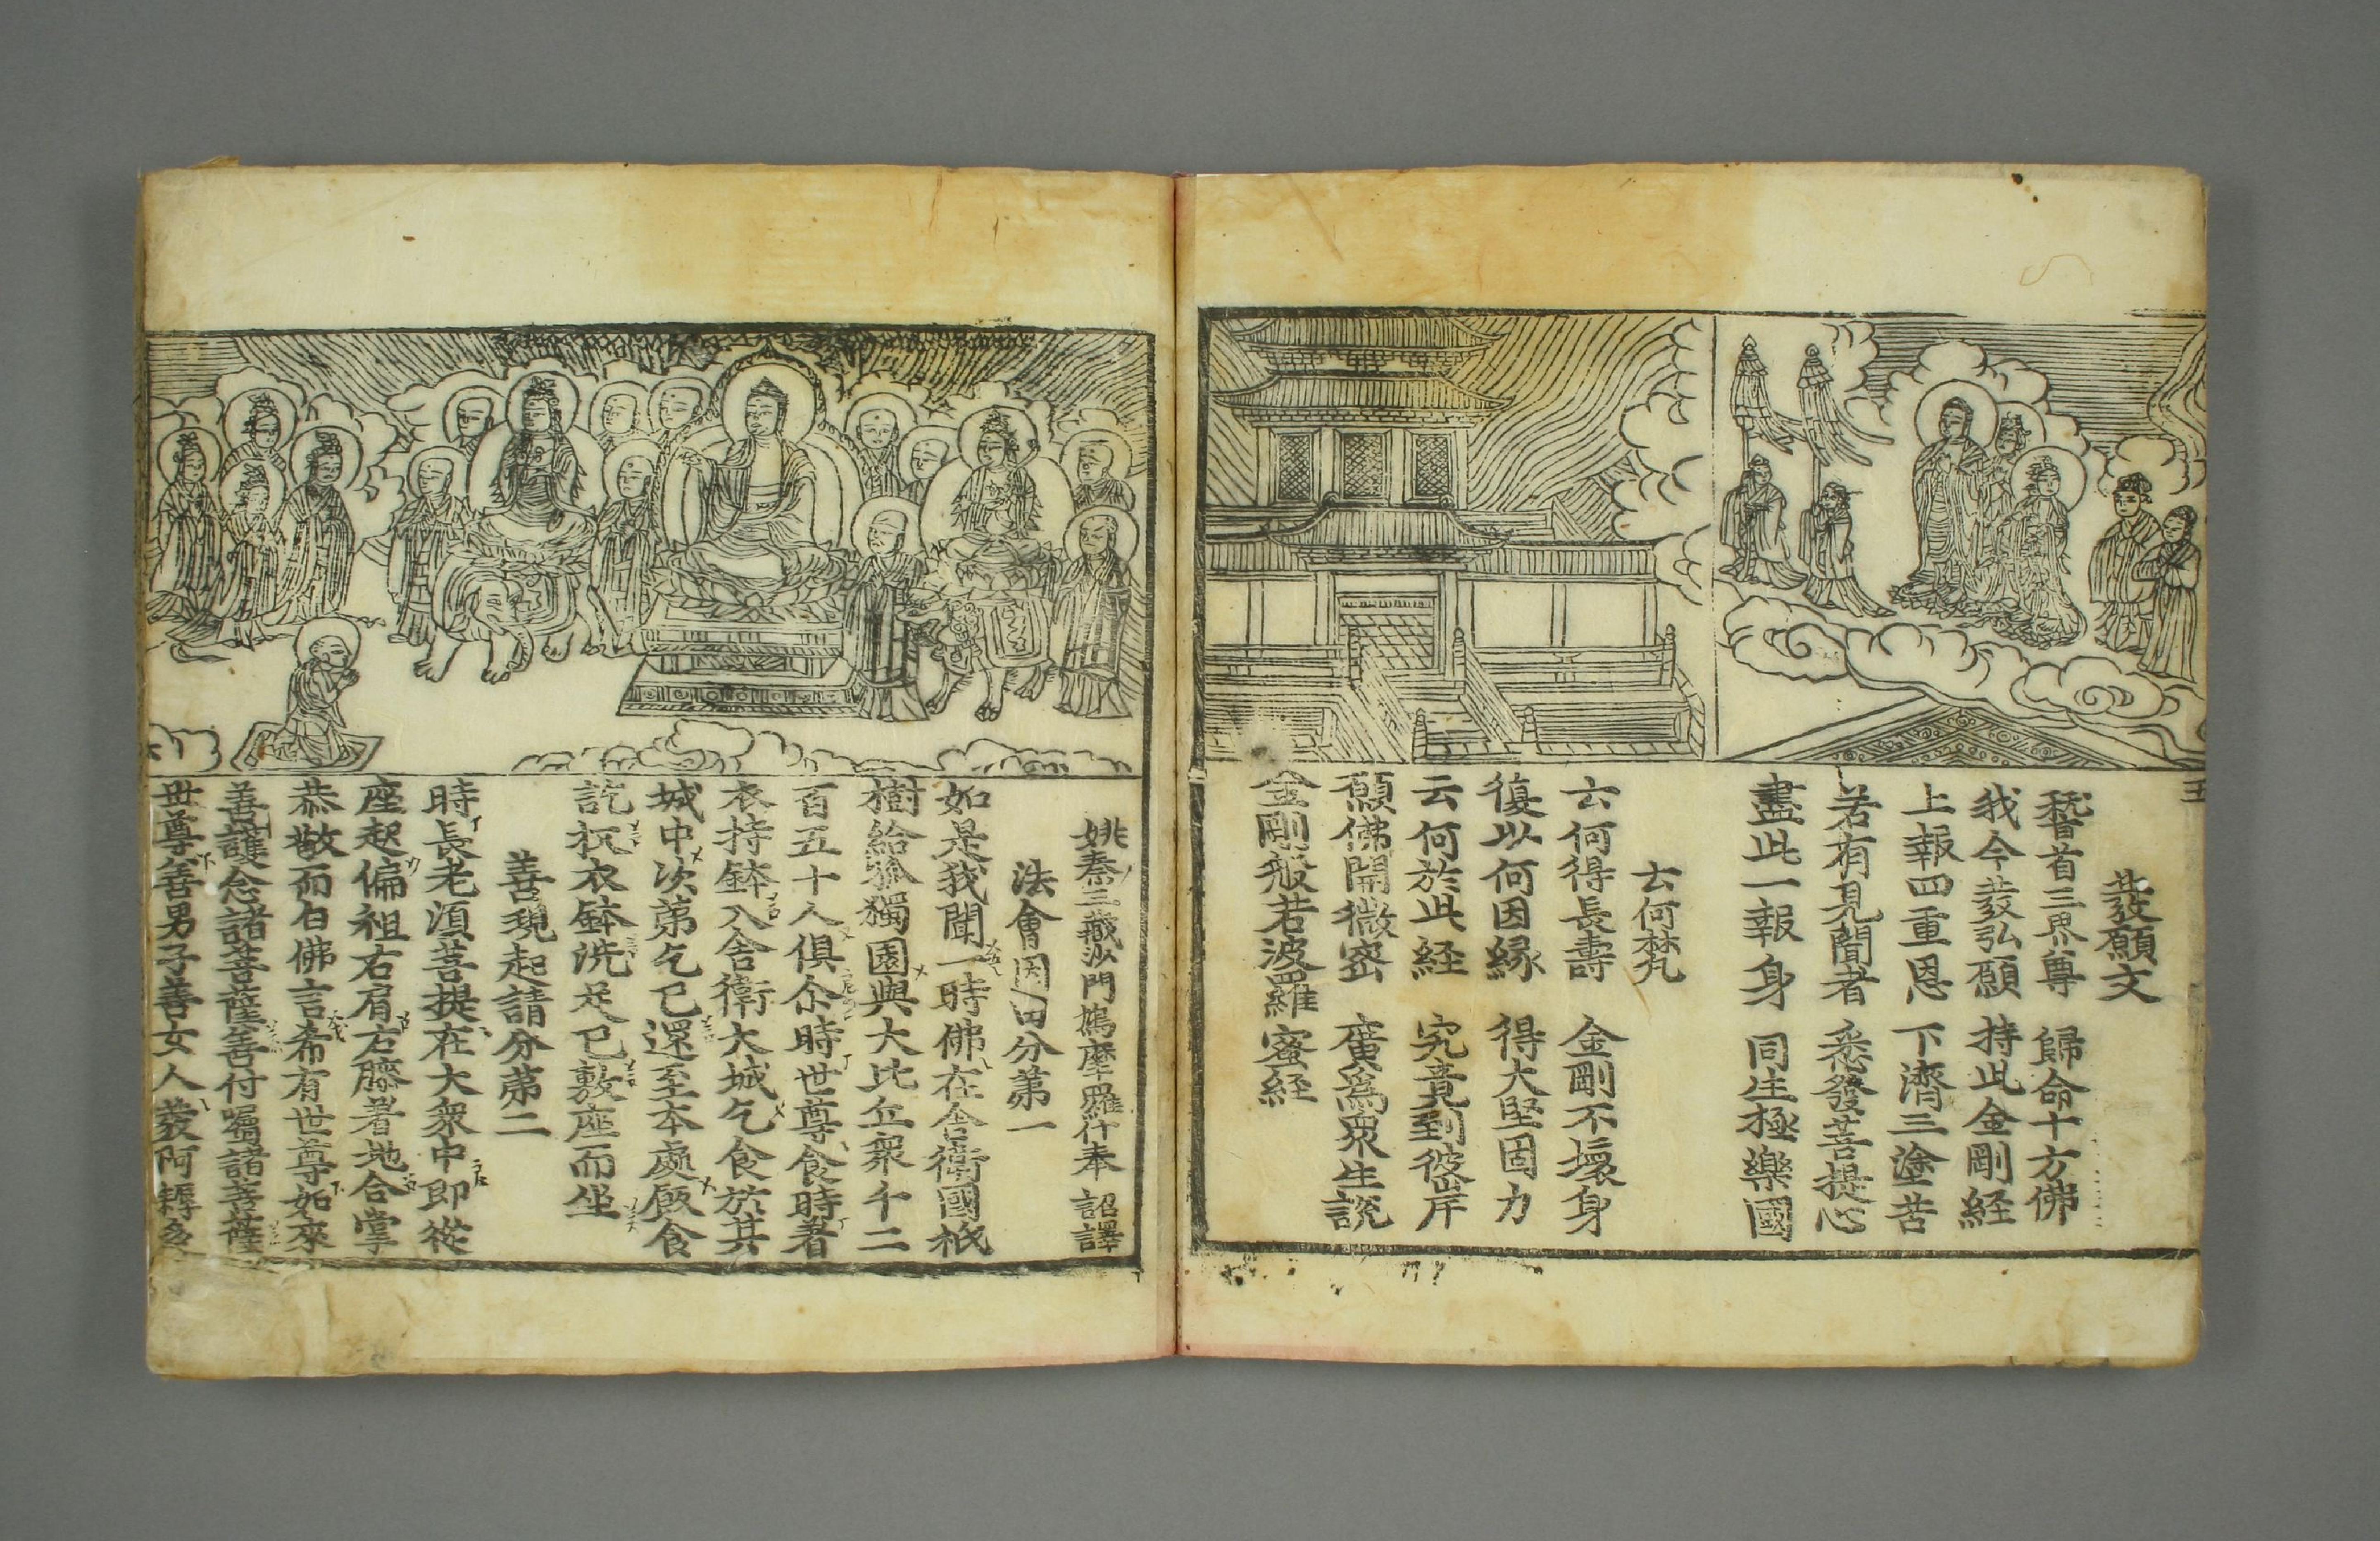 五
發願文
稽首三界尊 歸命十方佛
我今發弘願 持此金剛経
上報四重恩 下濟三塗苦
若有見聞者 悉發菩提心
盡此一報身 同生極樂國
云何梵
云何得長壽 金剛不壞身
復以何因縁 得大堅固力
云何於此経 究竟到彼岸
願佛開微密 廣爲衆生說
金剛般若波羅蜜経
姚秦三藏沙門鳩摩羅什奉 詔譯
法會因由分第一
如是我聞一時佛在舍衛國祇
樹給孤獨園與大比丘衆千二
百五十人俱尒時世尊食時著
衣持鉢入舍衛大城乞食於其
城中次第乞已還至本處飯食
訖抧衣鉢洗足已敷座而坐
善現起請分第二
時長老湏菩提在大衆中即從
座起偏袒右肩右膝著地合掌
恭敬而白佛言希有世尊如來
善護念諸菩薩善付囑諸菩薩
世尊善男子善女人發阿耨多